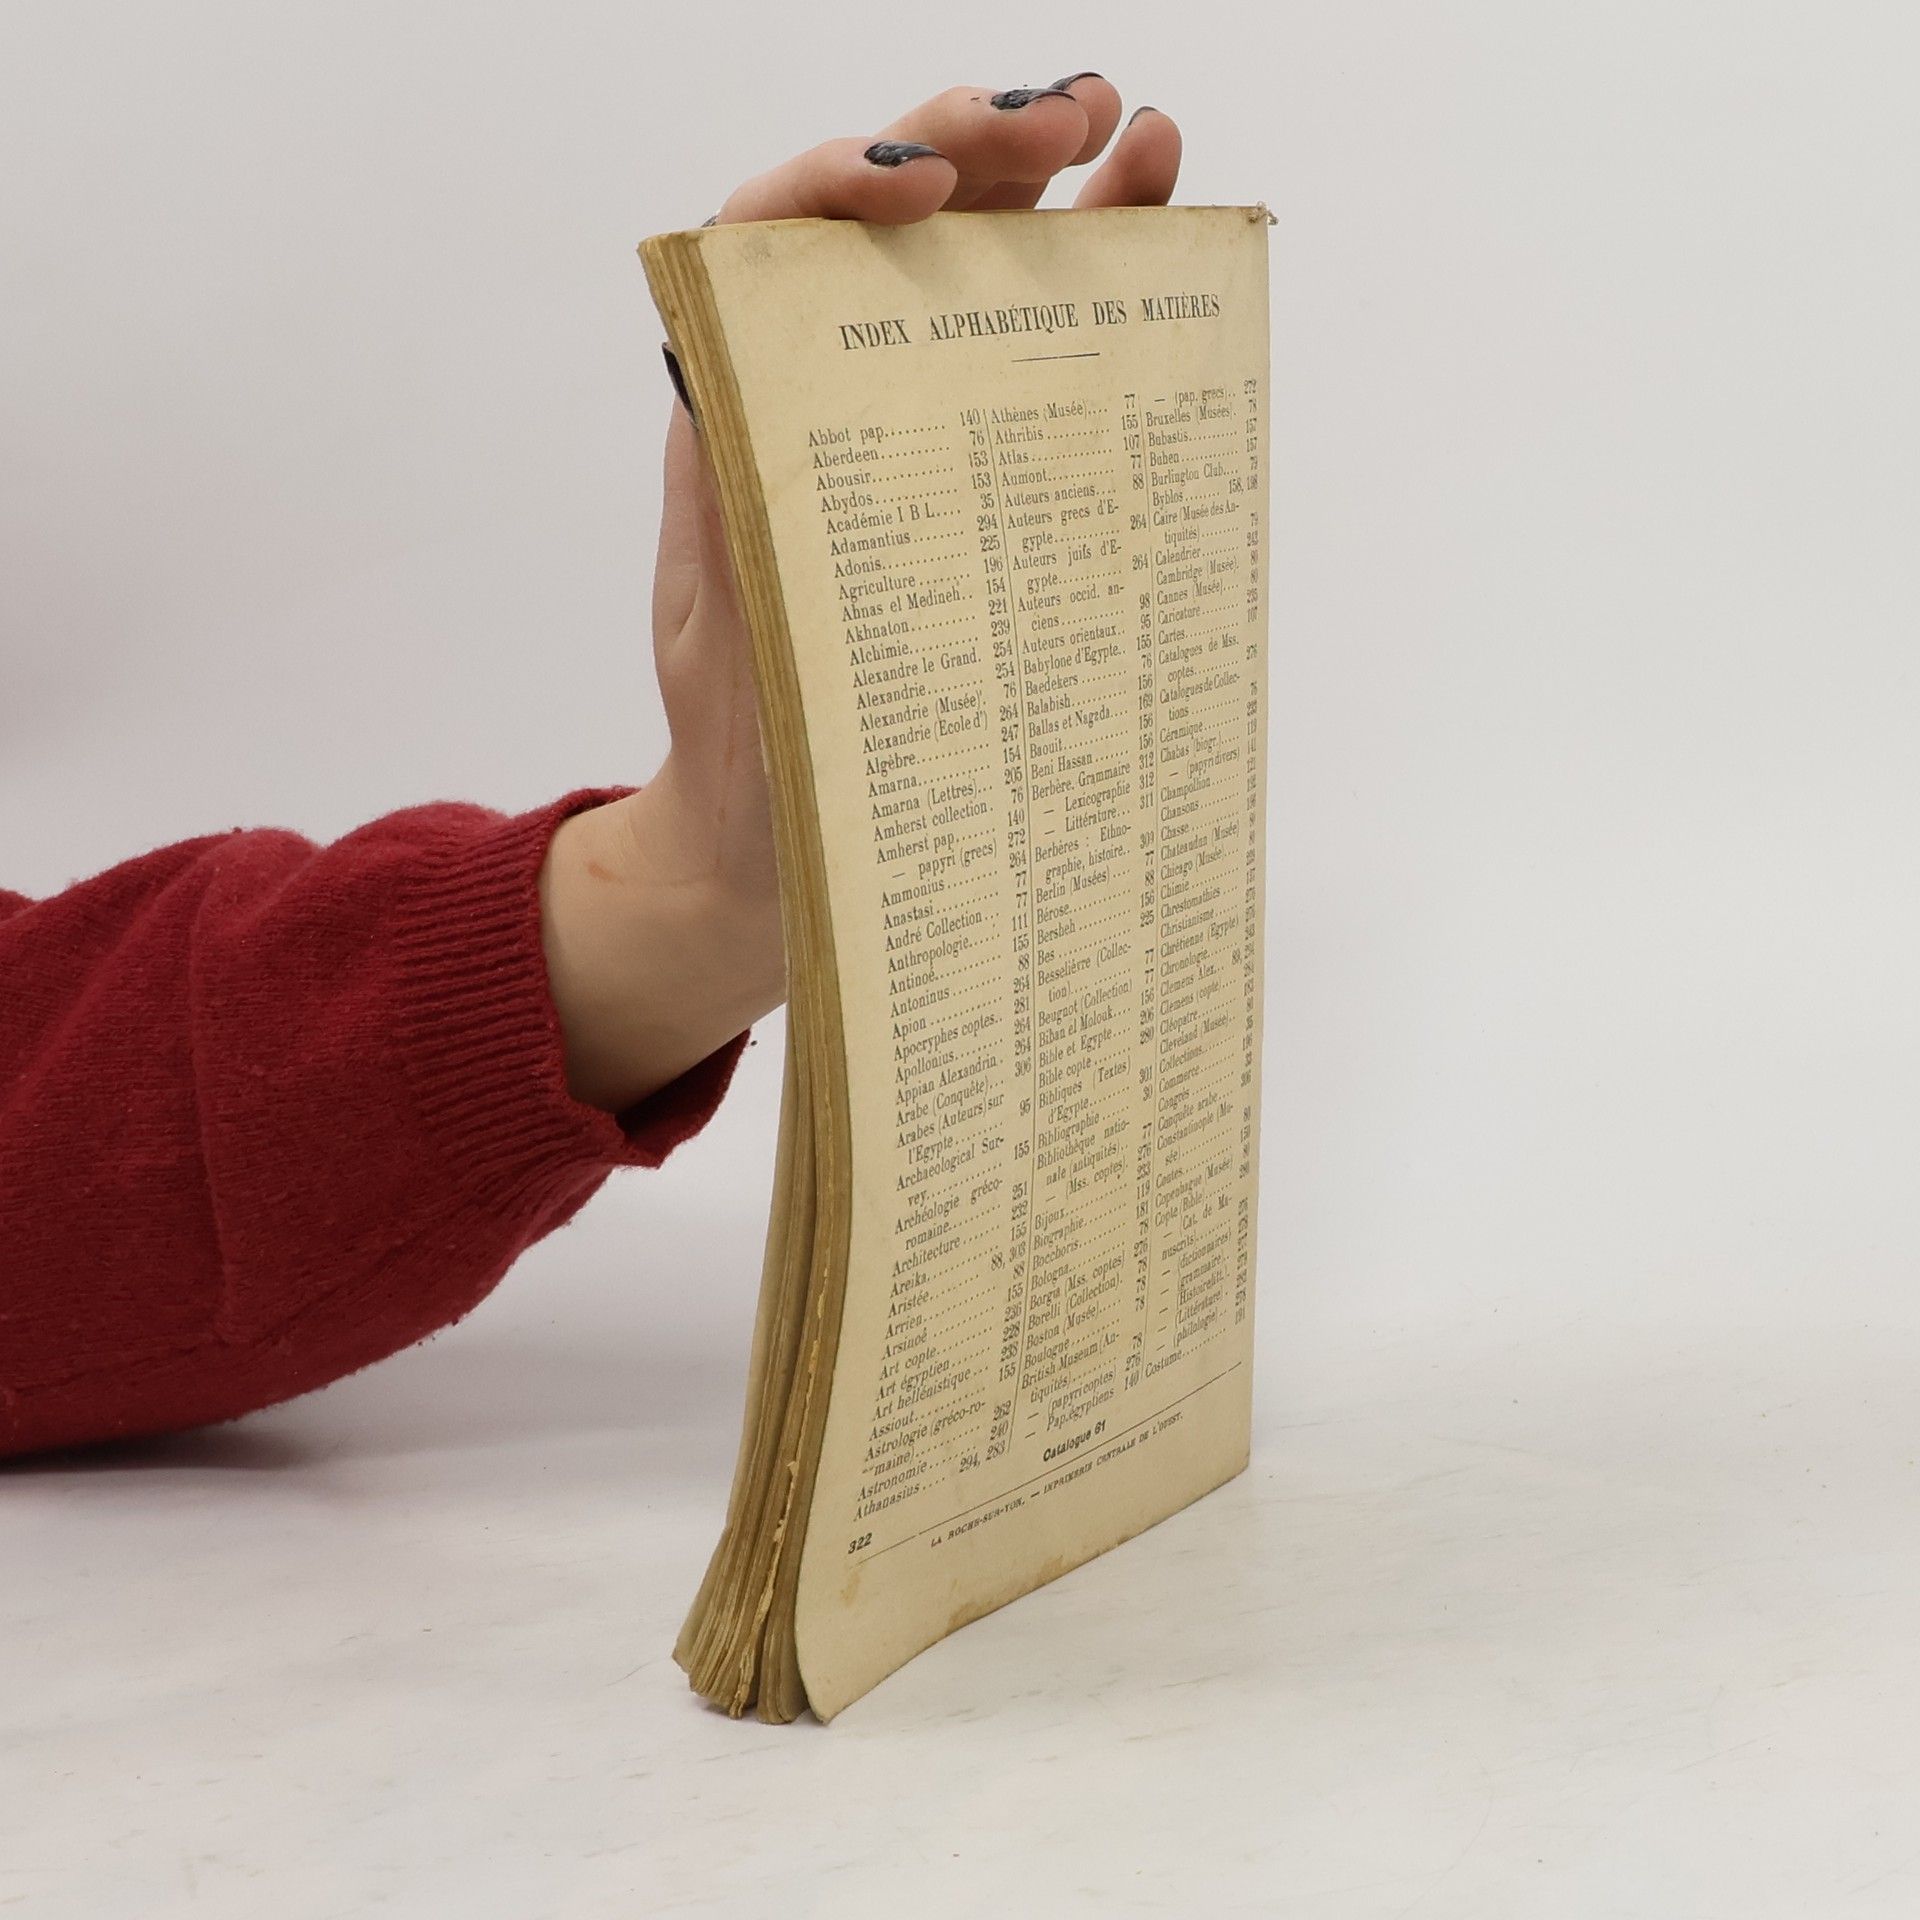 INDEX ALPHABÉTIQUE DES MATIÈRES
Abbot pap......... 140
Aberdeen.......... 76
Abousir........... 153
Abydos............ 153
Académie I B L.... 35
Adamantius........ 294
Adonis............ 225
Agriculture........ 196
Ahnas el Medineh.. 154
Akhnaton.......... 221
Alchimie.......... 239
Alexandre le Grand. 254
Alexandrie........ 254
Alexandrie (Musée). 76
Alexandrie (Ecole d') 264
Algèbre........... 247
Amarna............ 154
Amarna (Lettres)... 205
Amherst collection. 76
Amherst pap....... 140
— papyri (grecs) 272
Ammonius......... 264
Anastasi.......... 77
André Collection... 77
Anthropologie..... 111
Antinoé........... 155
Antoninus......... 88
Apion............. 264
Apocryphes coptes.. 281
Apollonius........ 264
Appian Alexandrin. 264
Arabe (Conquête)... 306
Arabes (Auteurs) sur
l'Egypte......... 95
Archaeological Sur-
vey............. 155
Archéologie gréco-
romaine.......... 251
Architecture....... 232
Areika............ 155
Aristée........... 88, 303
Arrien............ 88
Arsinoé........... 155
Art copte......... 236
Art égyptien...... 228
Art hellénistique... 238
Assiout........... 155
Astrologie (gréco-ro-
maine).......... 262
Astronomie........ 240
Athanasius.... 294, 283
Athènes (Musée).... 77
Athribis........... 155
Atlas.............. 107
Aumont............ 77
Auteurs anciens.... 88
Auteurs grecs d'E-
gypte............ 264
Auteurs juifs d'E-
gypte............ 264
Auteurs occid. an-
ciens............ 98
Auteurs orientaux.. 95
Babylone d'Egypte.. 155
Baedekers......... 76
Balabish.......... 156
Ballas et Nagada.... 169
Baouit............ 156
Beni Hassan...... 156
Berbère. Grammaire 312
— Lexicographie 312
— Littérature... 311
Berbères : Ethno-
graphie, histoire.. 309
Berlin (Musées).... 77
Bérose............ 88
Bersheh........... 156
Bes............... 225
Besselièvre (Collec-
tion)............ 77
Beugnot (Collection) 77
Biban el Molouk.... 156
Bible et Egypte.... 206
Bible copte....... 280
Bibliques (Textes)
d'Egypte......... 301
Bibliographie...... 30
Bibliothèque natio-
nale (antiquités).. 77
— (Mss. coptes). 276
Bijoux............ 233
Biographie........ 119
Bocchoris......... 181
Bologna........... 78
Borgia (Mss. coptes) 276
Borelli (Collection). 78
Boston (Musée).... 78
Boulogne.......... 78
British Museum (An-
tiquités)......... 78
— (papyri coptes) 276
— Pap. égyptiens 140
— (pap. grecs).. 272
Bruxelles (Musées). 78
Bubastis........... 157
Buhen............. 157
Burlington Club.... 73
Byblos........ 158, 198
Caire (Musée des An-
tiquités)........ 79
Calendrier........ 243
Cambridge (Musée). 80
Cannes (Musée).... 80
Caricature......... 235
Cartes............ 107
Catalogues de Mss.
coptes.......... 276
Catalogues de Collec-
tions............ 76
Céramique........
Chabas (biogr.)..... 119
— (papyri divers) 141
Champollion....... 121
Chansons.........
Chasse............
Chateaudun (Musée) 80
Chicago (Musée)... 80
Chimie...........
Chrestomathies....
Christianisme.....
Chrétienne (Egypte)
Chronologie.......
Clemens Alex...
Clemens (copte)....
Cléopatre.........
Cleveland (Musée).. 80
Collections........
Commerce......... 196
Congrès..........
Conquête arabe... 306
Constantinople (Mu-
sée)............. 80
Contes............
Copenhague (Musée) 80
Copte (Bible)...... 280
— Cat. de Ma-
nuscrits........ 276
— (dictionnaires)
— grammaire..
— (Histoire litt.).
— (Littérature)..
— (philologie)..
Costume.......... 191
Catalogue 61
322
LA ROCHE-SUR-YON. — IMPRIMERIE CENTRALE DE L'OUEST.